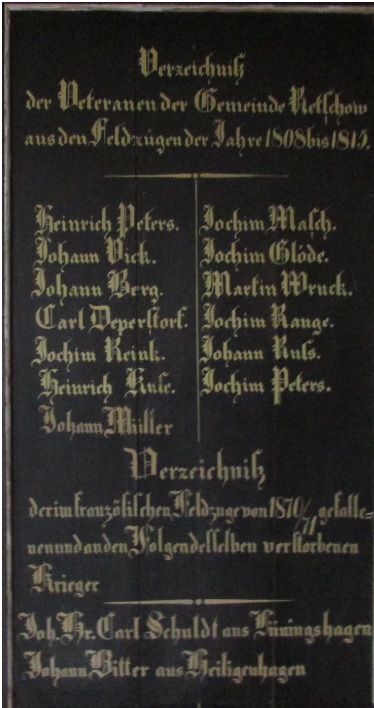 Verzeichniß
der Veteranen der Gemeinde Retschow
aus den Feldzügen der Jahre 1808 bis 1815.
Heinrich Peters.
Johann Vick.
Johann Berg.
Carl Deperstorf.
Jochim Reink.
Heinrich Ruse.
Johann Müller
Jochim Masch.
Jochim Glöde.
Martin Wruck.
Jochim Range.
Johann Russ.
Jochim Peters.
Verzeichniß
der im französischen Feldzuge von 1870/71 gefalle=
nen und an den Folgen desselben verstorbenen
Krieger
Joh. Hr. Carl Schuldt aus Püningshagen
Johann Bitter aus Heiligenhagen